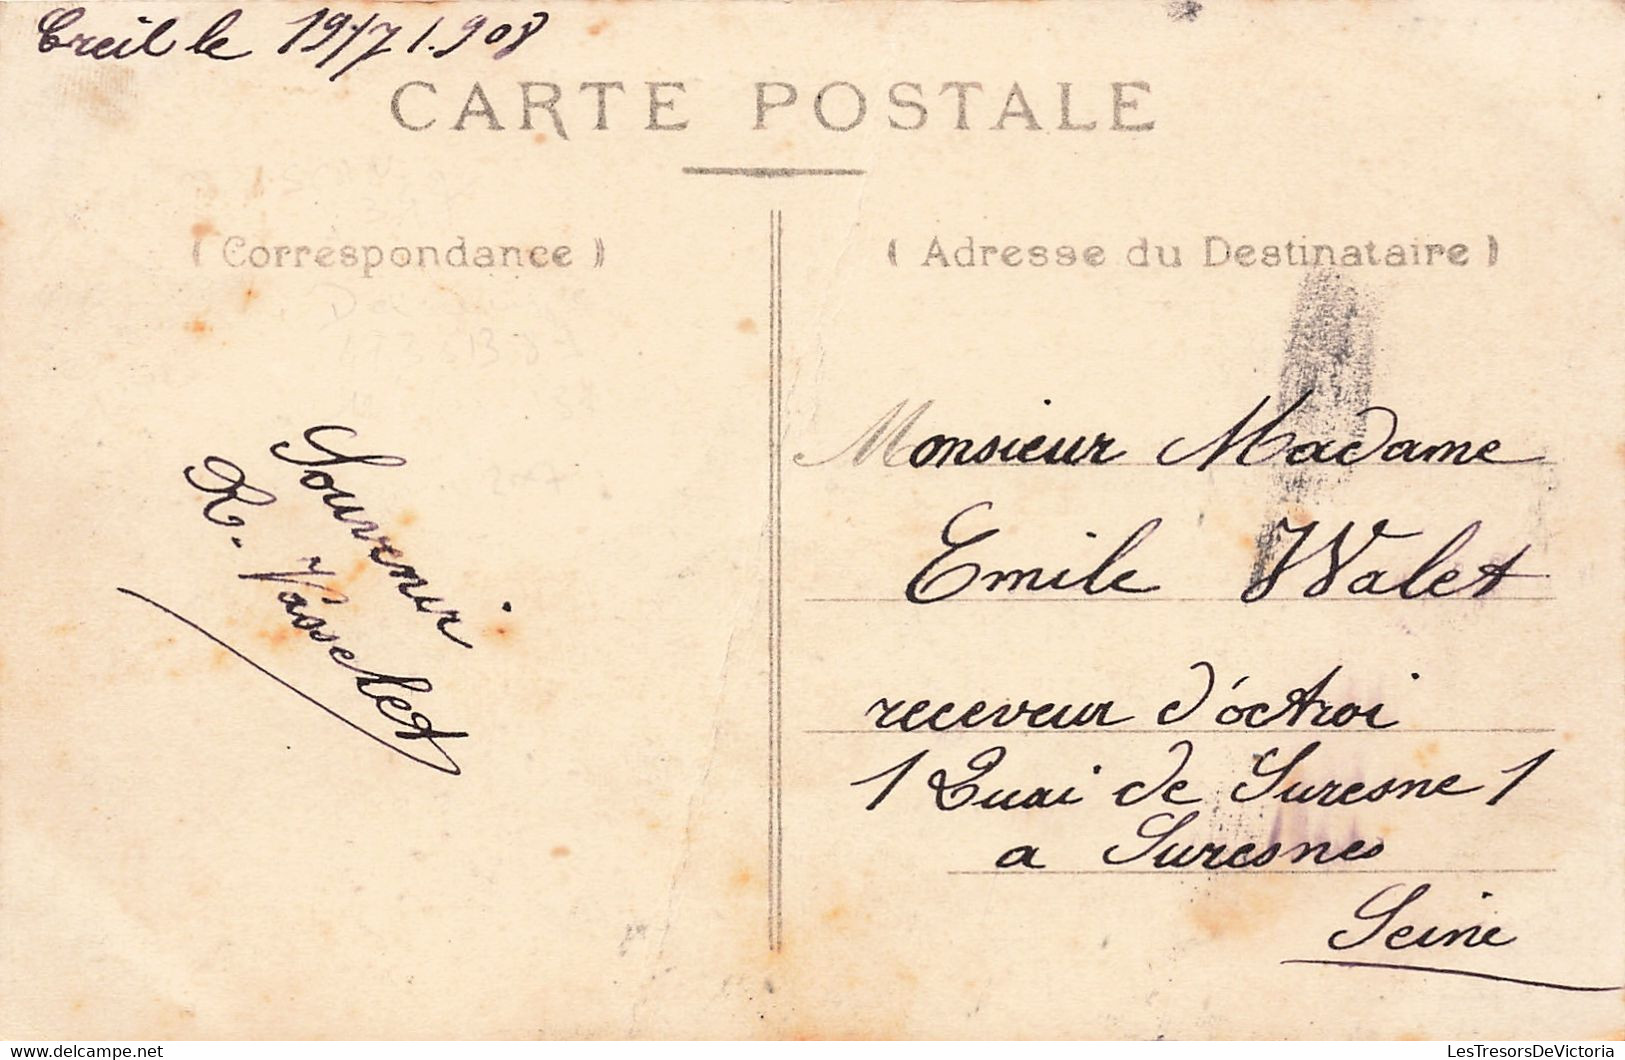 Creil le 19/7/1.908
CARTE POSTALE
( Correspondance )
( Adresse du Destinataire )
Souvenir
R. Vasselet
Monsieur Madame
Emile Walet
receveur d'octroi
1 Quai de Suresne 1
a Suresnes
Seine
LesTresorsDeVictoria